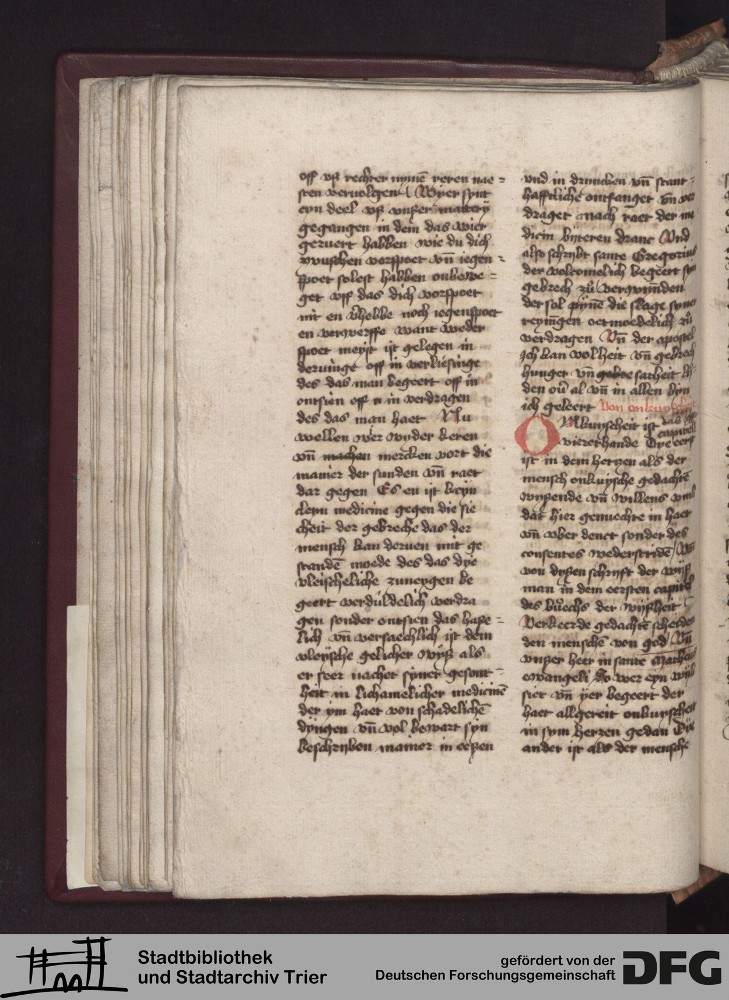 off vß rechter nÿmē reren nae =
sten vervolgen / Wÿer synt
eyn deel vß vnßer matterÿ
gegangen in dem das wier
geruert habben wie du dich
tvuschen vorspoet vn̄ iegen =
spoet solest habben onbewe =
get vff das dich vorspoet
nit en v̄hebbe noch iegenspoet
en verwerffe want weder
spoet meÿst ist gelegen in
deruinge off in verliesinge
des das man begeert off in
ontsien off in verdragen
des das man haet Nu
wellen wer wÿder keren
vn̄ mercken vort die
manier der sunden vn̄ raet
dar gegen Es en ist keyn
cleyn medicine gegen die sie
cheit der gebreche das der
mensch kan deruen mit ge
standē moede des das dye
vleischeliche zuneygen be
geert verduldelich verdra
gen sonder ontsien das haße =
lich vn̄ versaechlich ist dem
vleÿsche gelicher wÿß als
er seer nachet sÿner gesont =
heit in lichamelicher medicinē
der ÿm haet von schadelichē
dÿngen vn̄ wol bewart sÿn
beschriben manier in eeßen
vnd in druncken vn̄ stant =
hafftliche ontfanget vn̄ ver
draget nach raet der me
dicin bÿtteren dranc Vnd
also schrybt sante Gregorius
der volcomelich begeert syn
gebrech zů verwynnden
der sol pÿnē die slage syner
reynīgen oetmoedelich zů
verdragen Vn̄ der apostel
Ich kan volheit vn̄ gebrech
hunger vn̄ sarheit lÿ
den ou̅ al vn̄ in allen byn
ich geleert Von onkuyscheit
ONkuyscheit ist das
vierrehande Dye eerst capittel
ist in dem hertzen als der
mensch onkuÿsche gedachtē
wyßende vn̄ willens vmb
dat hier genuechte in haet
vn̄ vber denct sonder des
consentes wederstridē /
von dyßen schryft der wÿß
man in dem eersten capittel
des buechs der wÿßheit
Verkeerde gedachtē scheiden
den menschē von god / Vn̄
vnßer heer in sante Matheus
ewangeli So wer eyn wÿb
siet vn̄ ÿer begeert der
haet allgereit onkuyscheit
in sym hertzen gedan Die
ander ist als der mensche
Stadtbibliothek
und Stadtarchiv Trier
gefördert von der
Deutschen Forschungsgemeinschaft
DFG